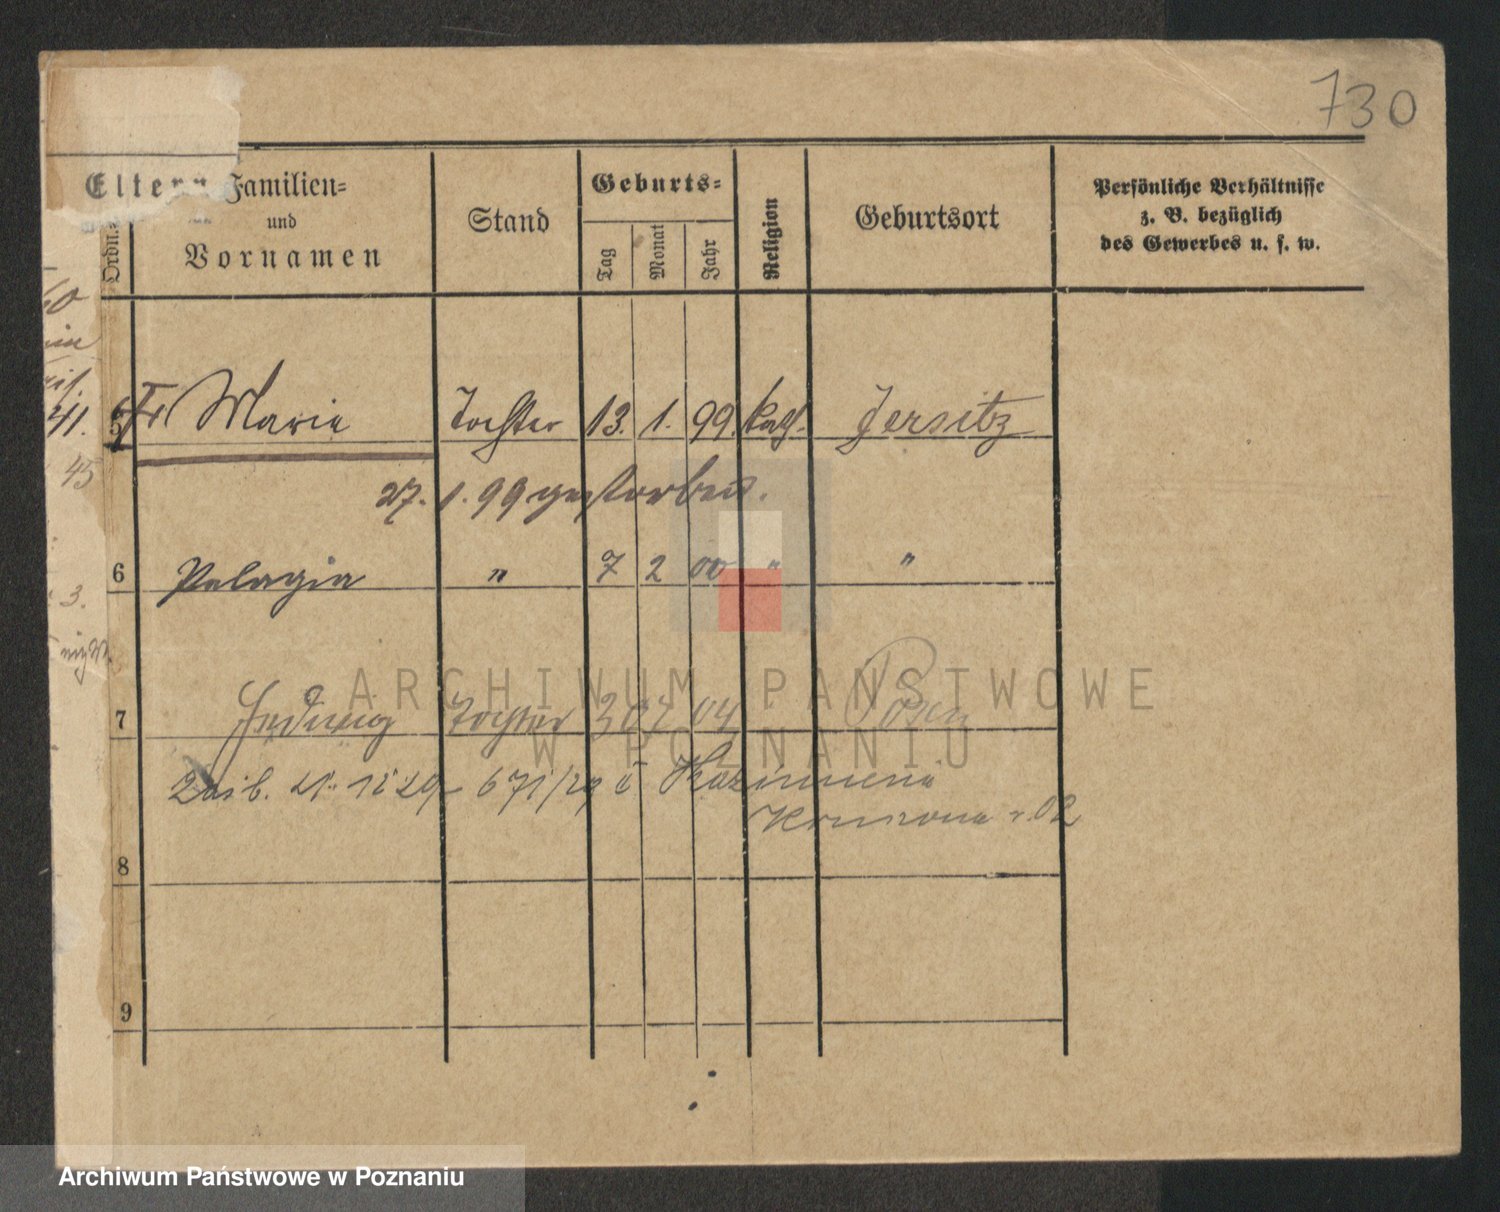 730
Eltern Familien=
und
Vornamen
Ordn.
Stand
Geburts=
Tag
Monat
Jahr
Religion
Geburtsort
Persönliche Verhältnisse
z. B. bezüglich
des Gewerbes u. s. w.
5 Marie Tochter 13. 1. 99. kath. Jersitz
27. 1. 99 gestorben.
6 Pelagia " 7 2 00 " "
ARCHIWUM PAŃSTWOWE
W POZNANIU
7 Hedwig Tochter 04 Posen
671/29 Kazimiera
02
8
9
41.
45
3.
Archiwum Państwowe w Poznaniu